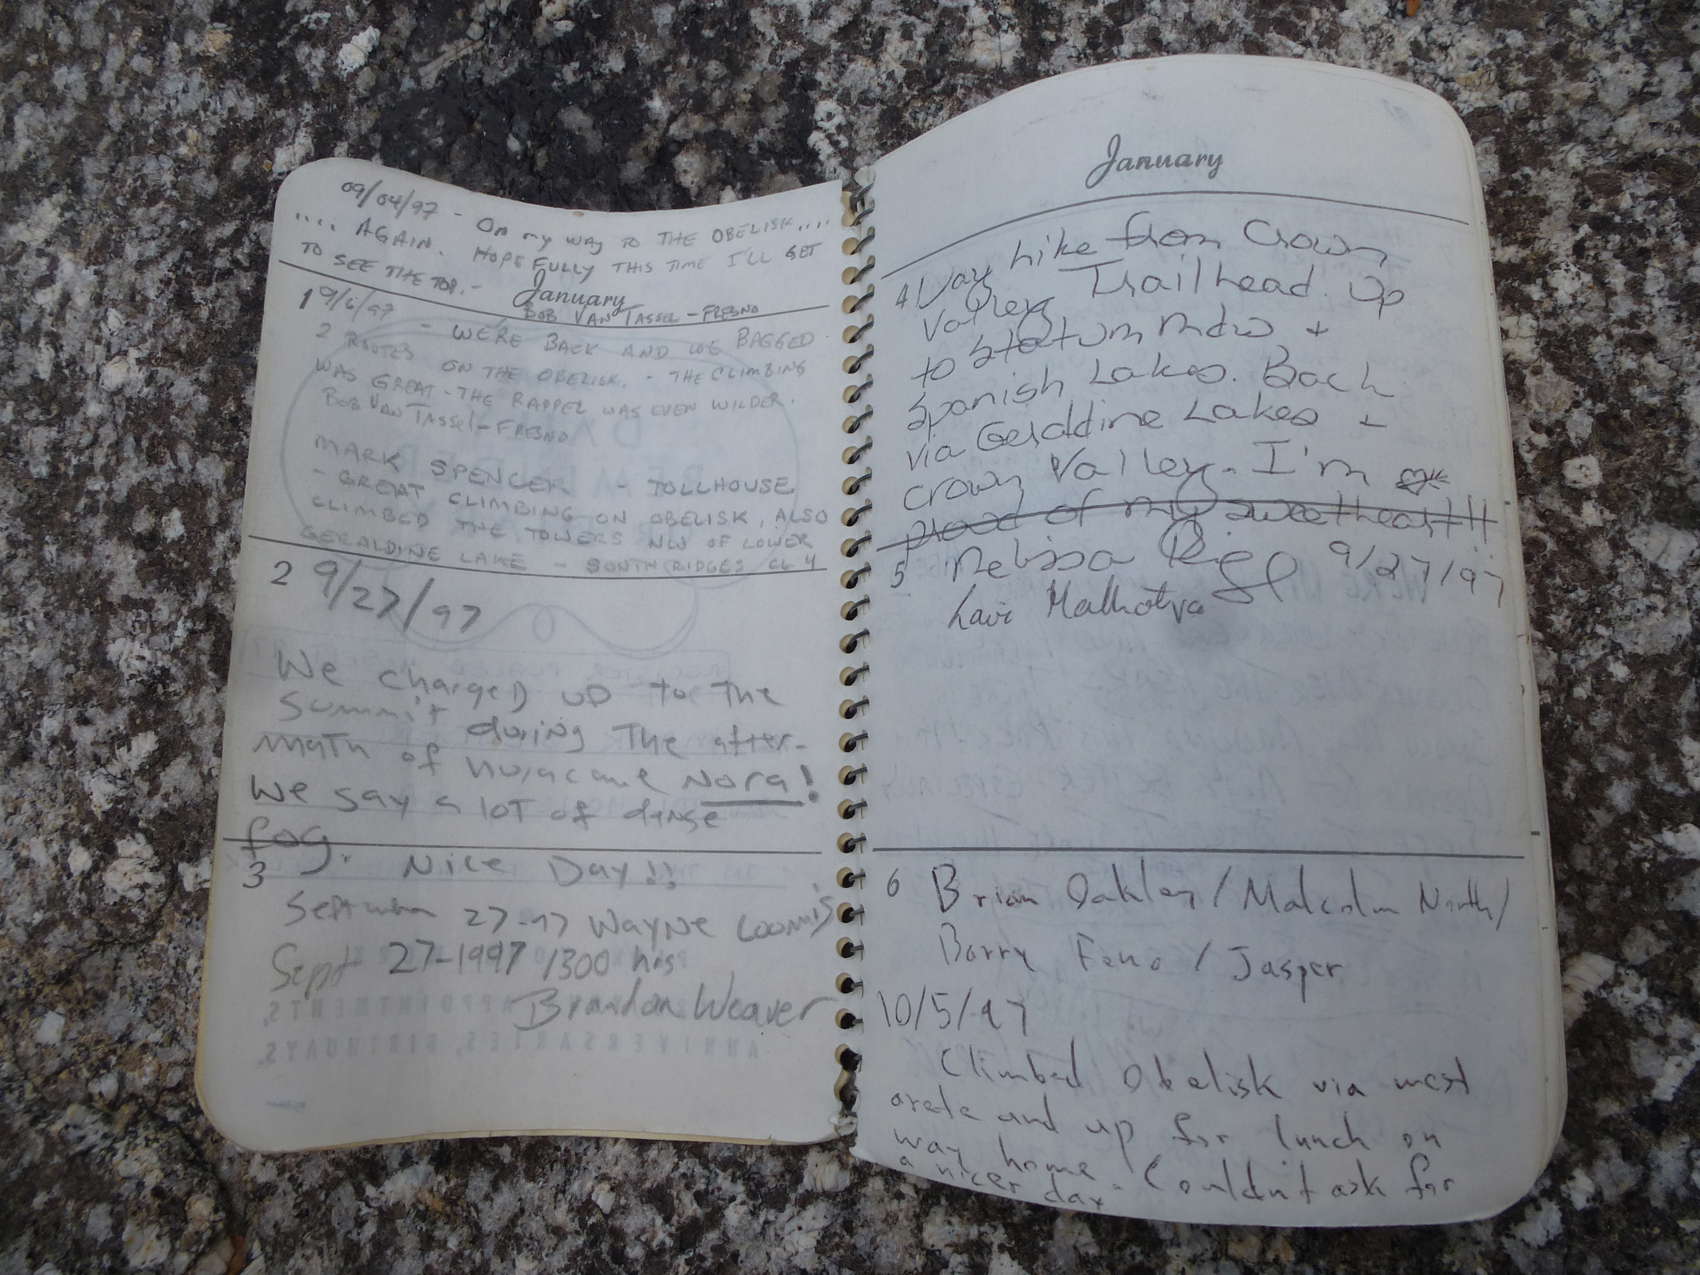 09/04/97 - ON MY WAY TO THE OBELISK....
.... AGAIN. HOPEFULLY THIS TIME I'LL GET
TO SEE THE TOP. -
January
BOB VAN TASSEL - FRESNO
1 9/6/97 - WE'RE BACK AND WE BAGGED
2 ROUTES ON THE OBELISK. - THE CLIMBING
WAS GREAT - THE RAPPEL WAS EVEN WILDER.
BOB VAN TASSEL - FRESNO
MARK SPENCER - TOLLHOUSE
- GREAT CLIMBING ON OBELISK, ALSO
CLIMBED THE TOWERS NW OF LOWER
GERALDINE LAKE - SOUTH RIDGES CL 4
2 9/27/97
We charged up to the
Summit during the after-
math of huracane Nora!
We say a lot of dense
fog. Nice Day!!
3
September 27-97 Wayne Loomis
Sept 27-1997 1300 hrs
Brandon Weaver
January
4 Day hike from Crown
Valley Trailhead up
to Statum mdw +
Spanish Lakes. Back
via Geraldine Lakes +
crown Valley. I'm
proud of my sweetheart!!
5 Melissa 9/27/97
Lavi Malhotra
6 Brian Oakley / Malcolm North /
Barry / Jasper
10/5/97
Climbed Obelisk via west
arete and up for lunch on
way home. Couldn't ask for
a nicer day